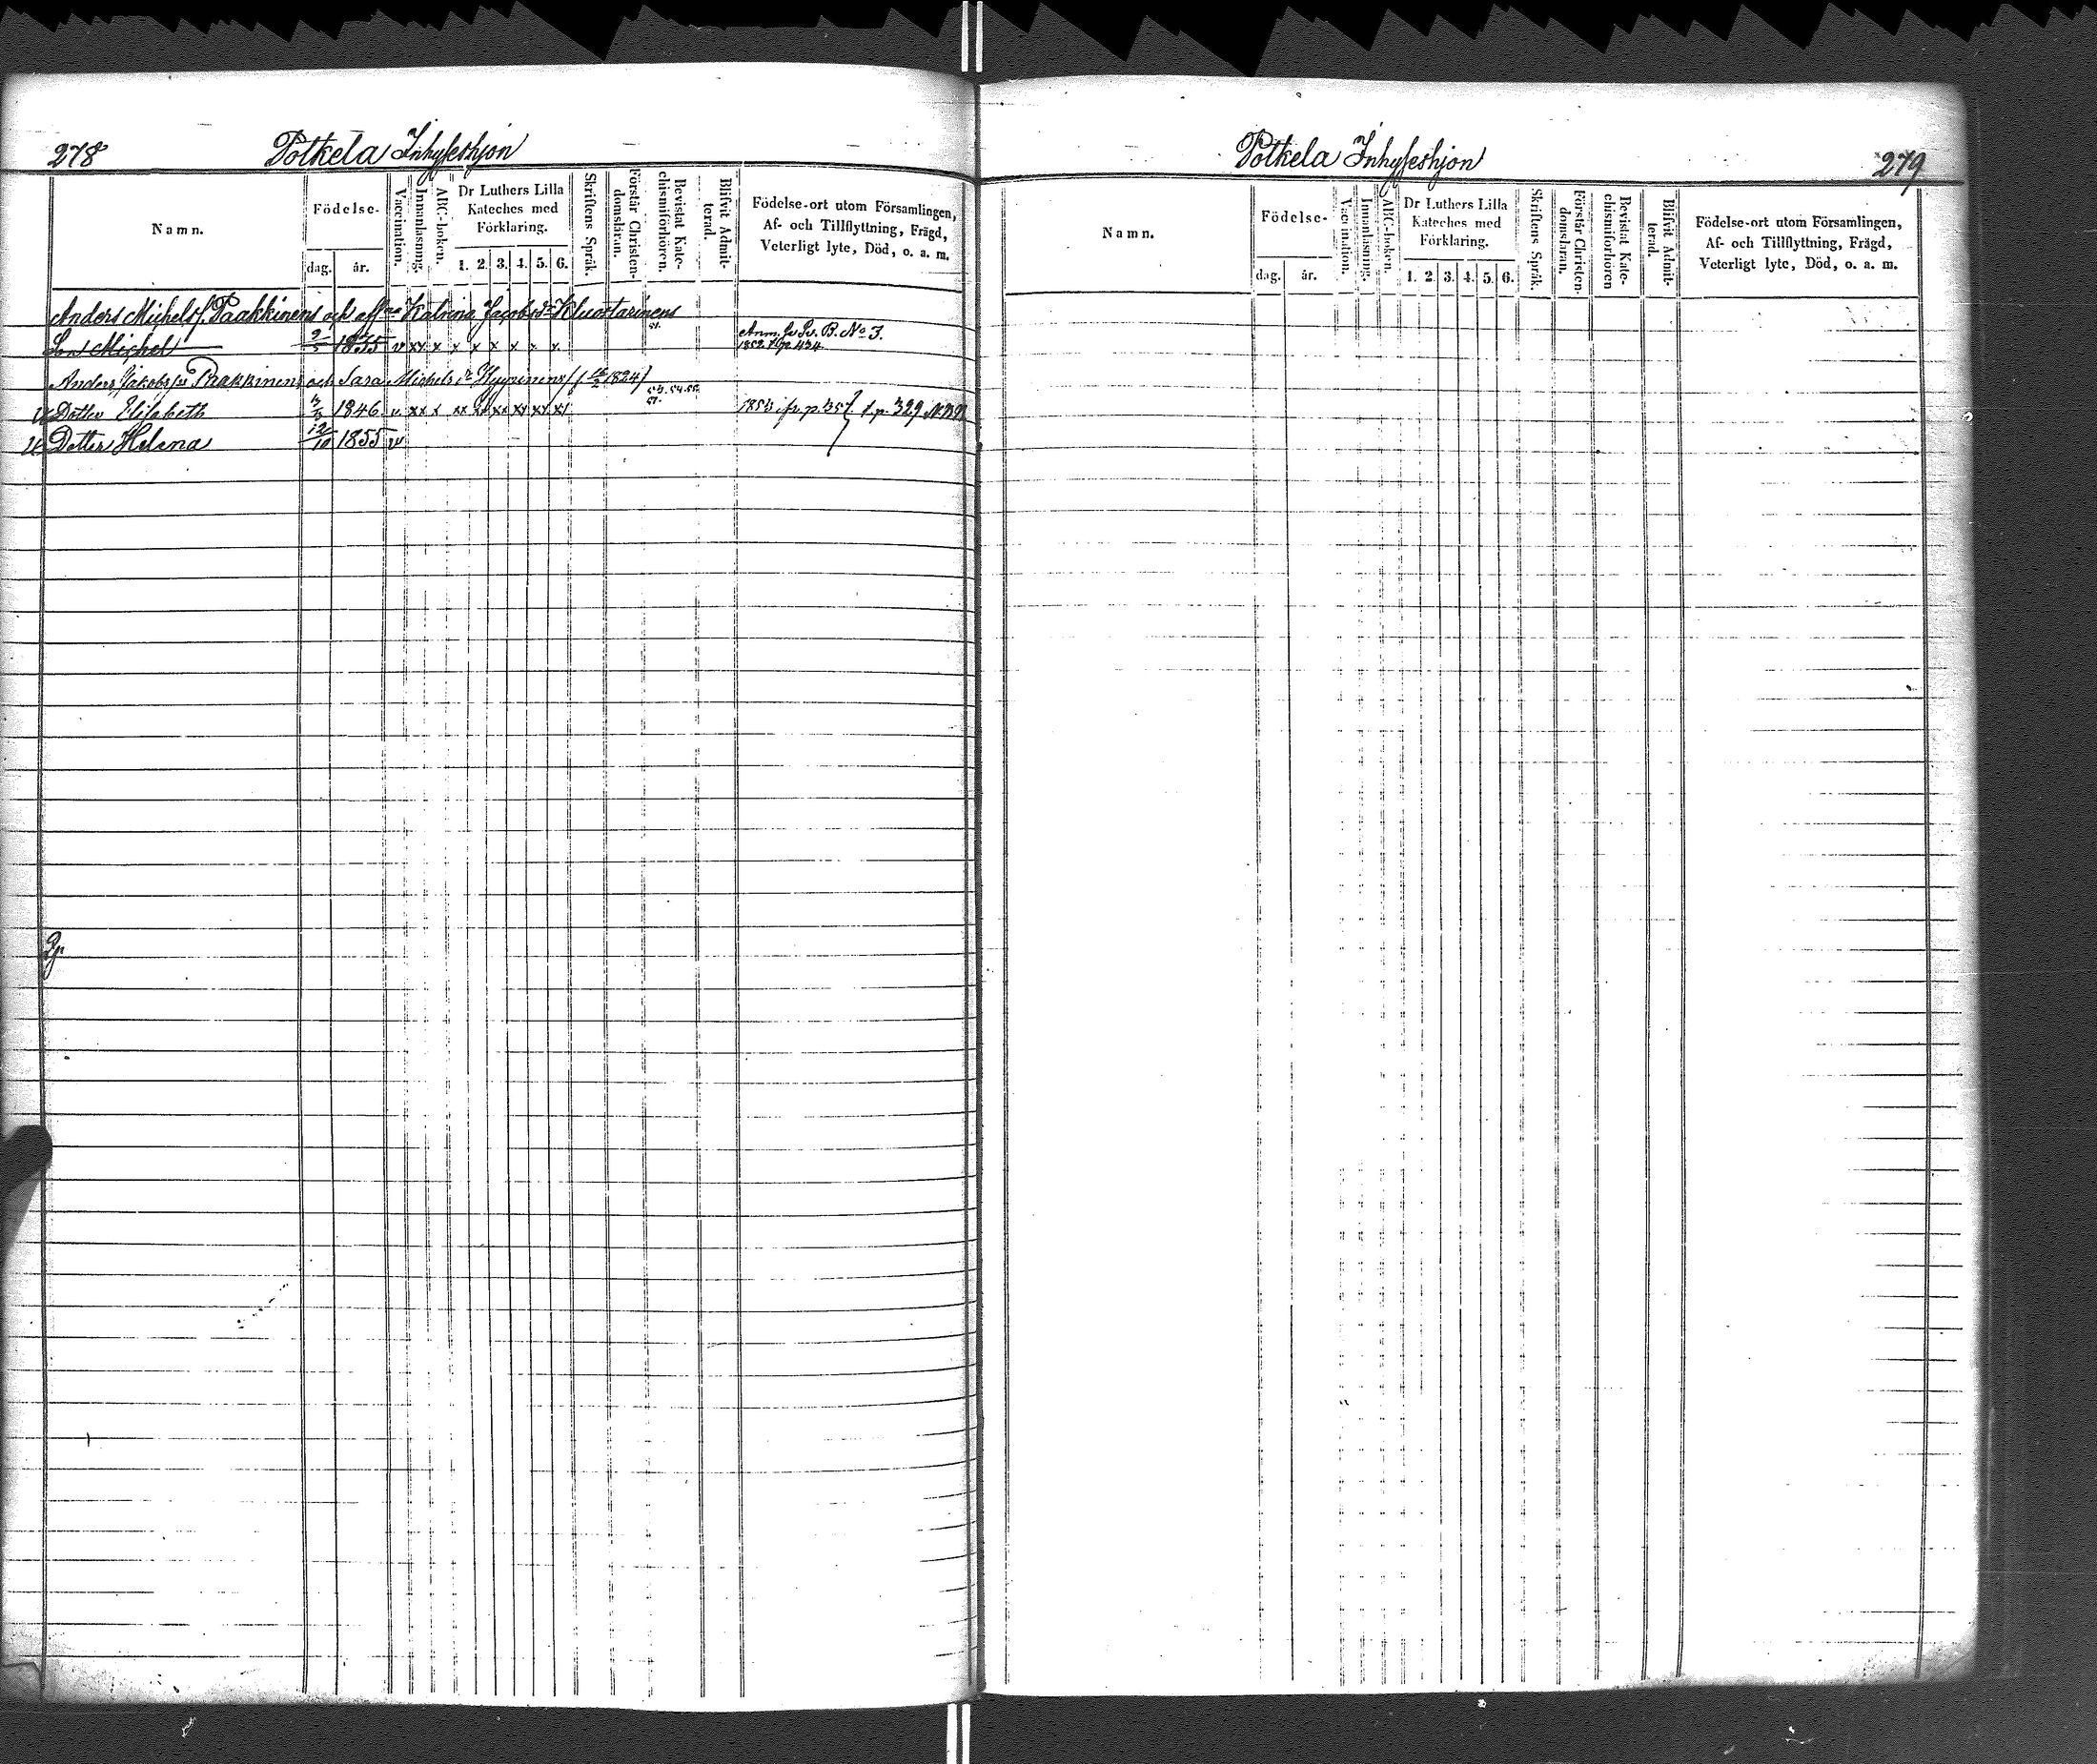 278 Potkela Inhyseshjon
Namn.
Födelse-
dag. år.
Vaccination.
Innanläsning.
ABC-boken.
Dr Luthers Lilla
Kateches med
Förklaring.
1. 2. 3. 4. 5. 6.
Skriftens Språk.
Förstår Christen-
domsläran.
Bevistat Kate-
chismiförhören.
Blifvit Admit-
terad.
Födelse-ort utom Församlingen,
Af- och Tillflyttning, Frägd,
Veterligt lyte, Död, o. a. m.
Anders Michels s. Paakkinens och afl. Katrina Jacobs dr
51.
Son Michel 2/5 1835 v xx x x x x x x x Anm. No 3.
1852 p. 434
Anders Jakobs sn Paakkinens och Sara Michels dr Hyvvinens 1824
53.54.55.
57.
Dotter Elisabeth 1846 v xx x xx xx xx xx xx xx 1853 fr. p. 357 t. p. 329
Dotter Helena 12/10 1855 v
Potkela Inhyseshjon 279
Namn.
Födelse-
dag. år.
Vaccination.
Innanläsning.
ABC-boken.
Dr Luthers Lilla
Kateches med
Förklaring.
1. 2. 3. 4. 5. 6.
Skriftens Språk.
Förstår Christen-
domsläran.
Bevistat Kate-
chismiförhören
Blifvit Admit-
terad.
Födelse-ort utom Församlingen,
Af- och Tillflyttning, Frägd,
Veterligt lyte, Död, o. a. m.